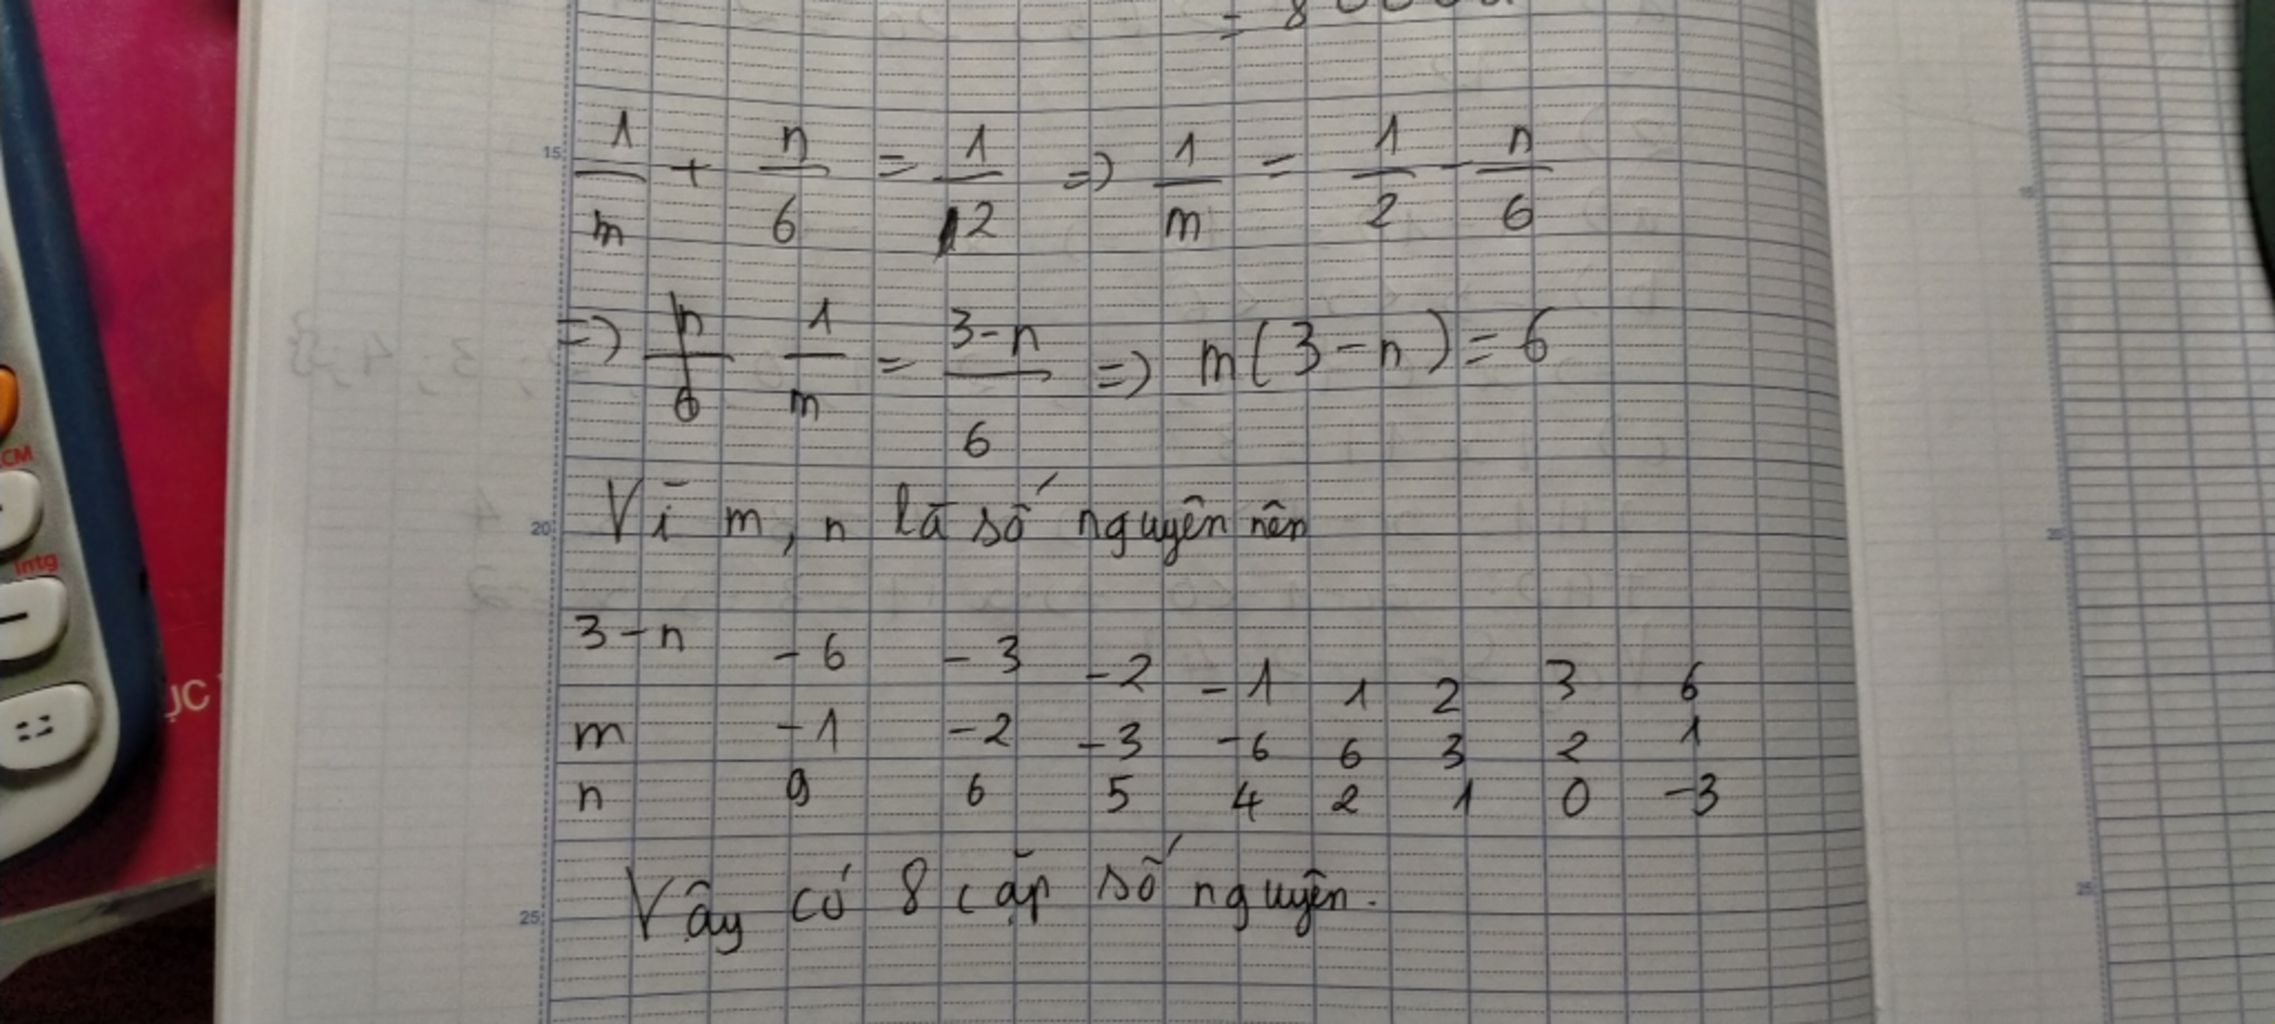 1/m + n/6 = 1/2 => 1/m = 1/2 - n/6
=> 1/m = (3-n)/6 => m(3-n) = 6
Vì m, n là số nguyên nên
3-n -6 -3 -2 -1 1 2 3 6
m -1 -2 -3 -6 6 3 2 1
n 9 6 5 4 2 1 0 -3
Vậy có 8 cặp số nguyên.
15
20
25
CM
Intg
ỤC